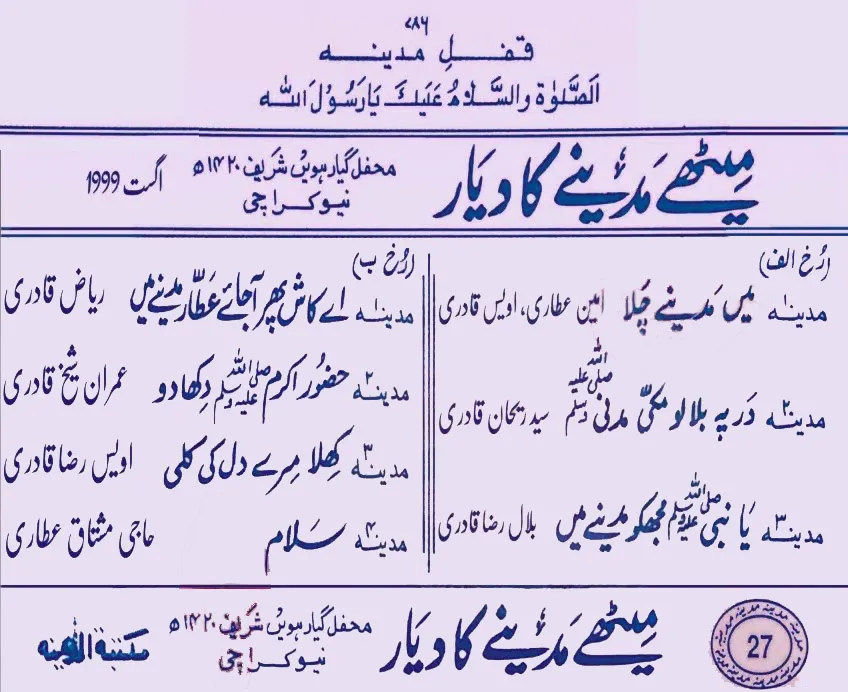 ۷۸۶
قفلِ مدینہ
اَلصَّلوٰۃُ والسَّلَامُ عَلَیْکَ یَارَسُوْلَ اللہ
میٹھے مَدِینے کا دیَار
محفل گیارہویں شریف ۱۴۲۰ھ
نیو کراچی
اگست 1999
(رُخ الف)
مدینہ۱ میں مَدینے چَلا امین عطاری، اویس قادری
مدینہ۲ دَر پہ بلا لو مکیّ مدنی صلی اللہ علیہ وسلم سید ریحان قادری
مدینہ۳ یَا نبی صلی اللہ علیہ وسلم مجھکو مدینے میں بلال رضا قادری
(رُخ ب)
مدینہ۱ اے کاش پھر آجائے عَطّار مدینے میں ریاض قادری
مدینہ۲ حضُور اکرم صلی اللہ علیہ وسلم دِکھا دو عمران شیخ قادری
مدینہ۳ کِھلا مِرے دل کی کلی اویس رضا قادری
مدینہ۴ سَلام حاجی مشتاق عطاری
27
میٹھے مَدِینے کا دیَار
محفل گیارہویں شریف ۱۴۲۰ھ
نیو کراچی
مکتبۃ المدینہ